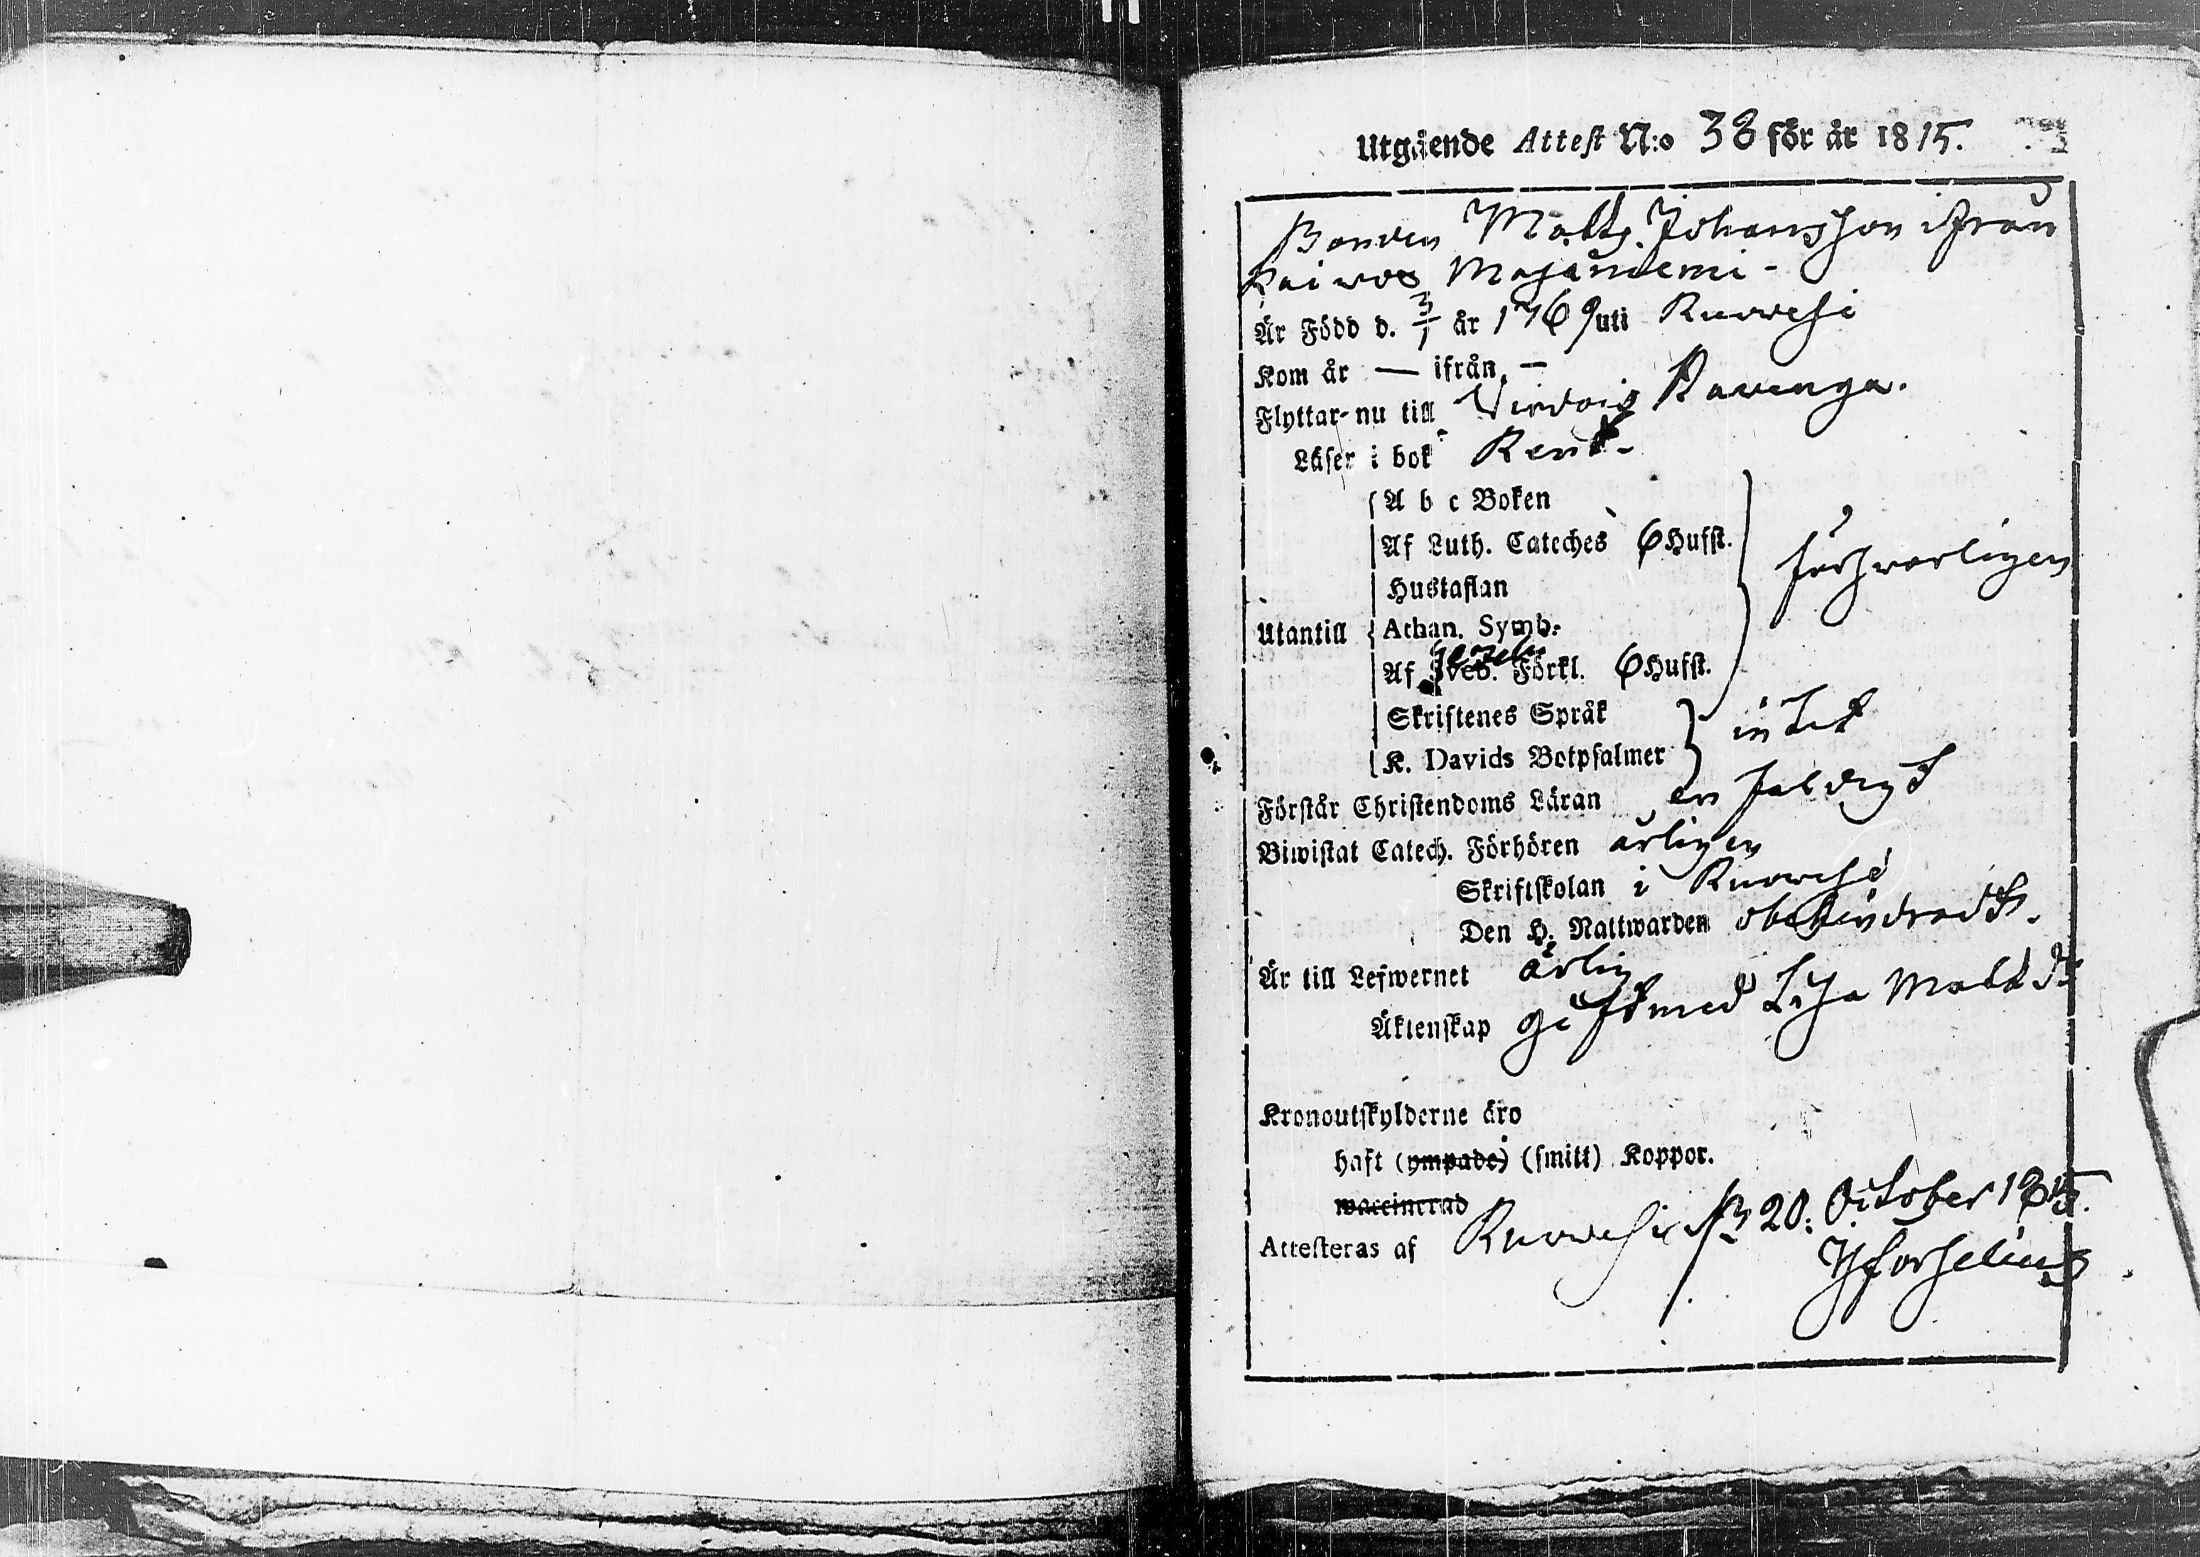 Utgående Attest N:o 38 för år 1815.
Bonden Matts Johansson ifrån
Kaiwos Majaniemi -
Är Född d. 3/1 år 1769 uti Ruowesi
Kom år — ifrån —
Flyttar nu till Virdois Kawenga.
Läser i bok Rent.
A b c Boken
Af Luth. Cateches 6 Hufst.
försvarligen
Hustaflan
Utantill Athan. Symb.
Af Sveb. Förkl. 6 Hufst.
Skriftenes Språk
intet
K. Davids Botpsalmer
Förstår Christendoms Läran enfaldigt
Biwistat Catech. Förhören årligen
Skriftskolan i Ruowesi
Den H. Nattwarden obehindradt.
Är till Lefwernet ärlig
Äktenskap gift med Lisa Matsd:r
Kronoutskylderne äro
haft (ympade) (smitt) Koppor.
waccinerad
Attesteras af Ruowesi 20: October 1815.
Forselius